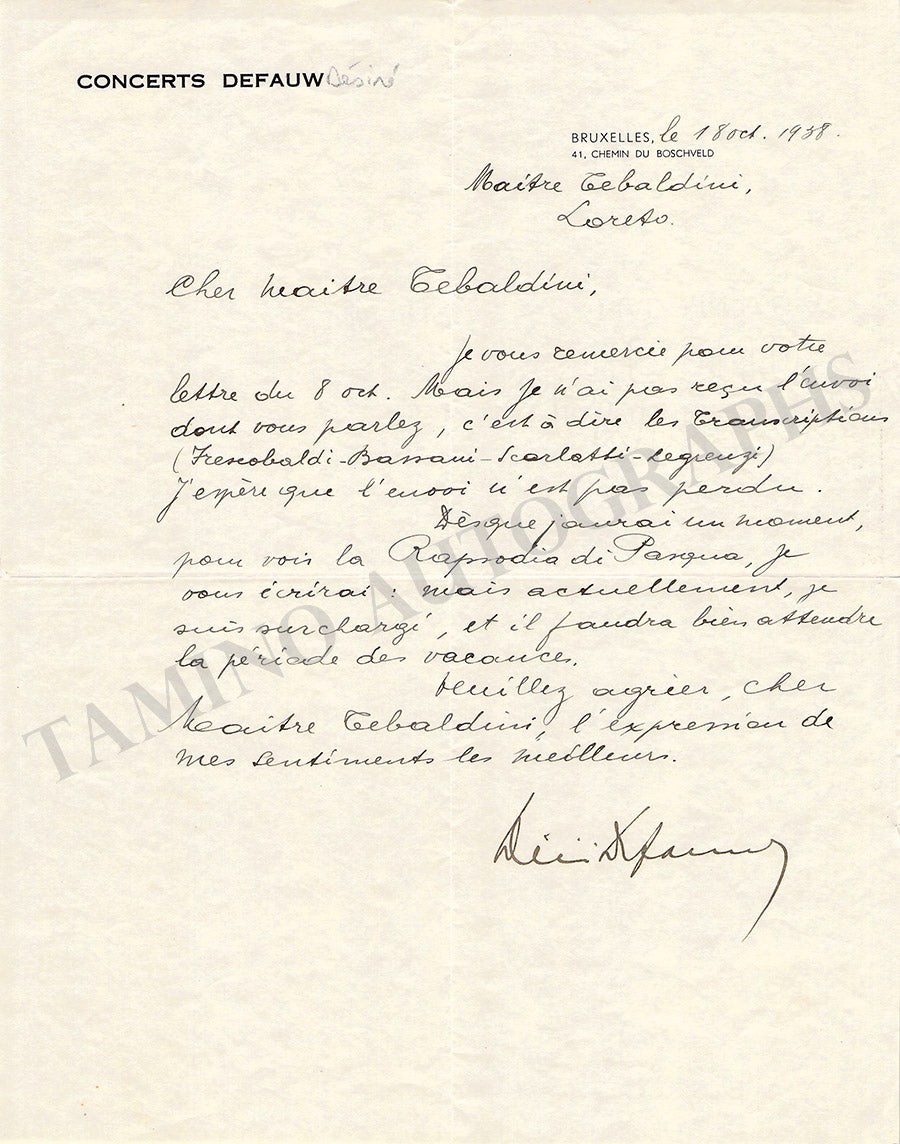 CONCERTS DEFAUW Désiré
BRUXELLES, le 18 oct. 1938.
41, CHEMIN DU BOSCHVELD
Maître Tebaldini,
Loreto.
Cher Maitre Tebaldini,
Je vous remercie pour votre
lettre du 8 oct. Mais je n'ai pas reçu l'envoi
dont vous parlez, c'est à dire les Transcriptions
(Frescobaldi-Bassani-Scarlatti-Legrenzi)
J'espère que l'envoi n'est pas perdu.
Dès que j'aurai un moment,
pour vois la Rapsodia di Pasqua, je
vous écrirai : mais actuellement, je
suis surchargé, et il faudra bien attendre
la période des vacances.
Veuillez agréer, cher
Maitre Tebaldini, l'expression de
mes sentiments les meilleurs.
Désiré Defauw
TAMINO AUTOGRAPHS